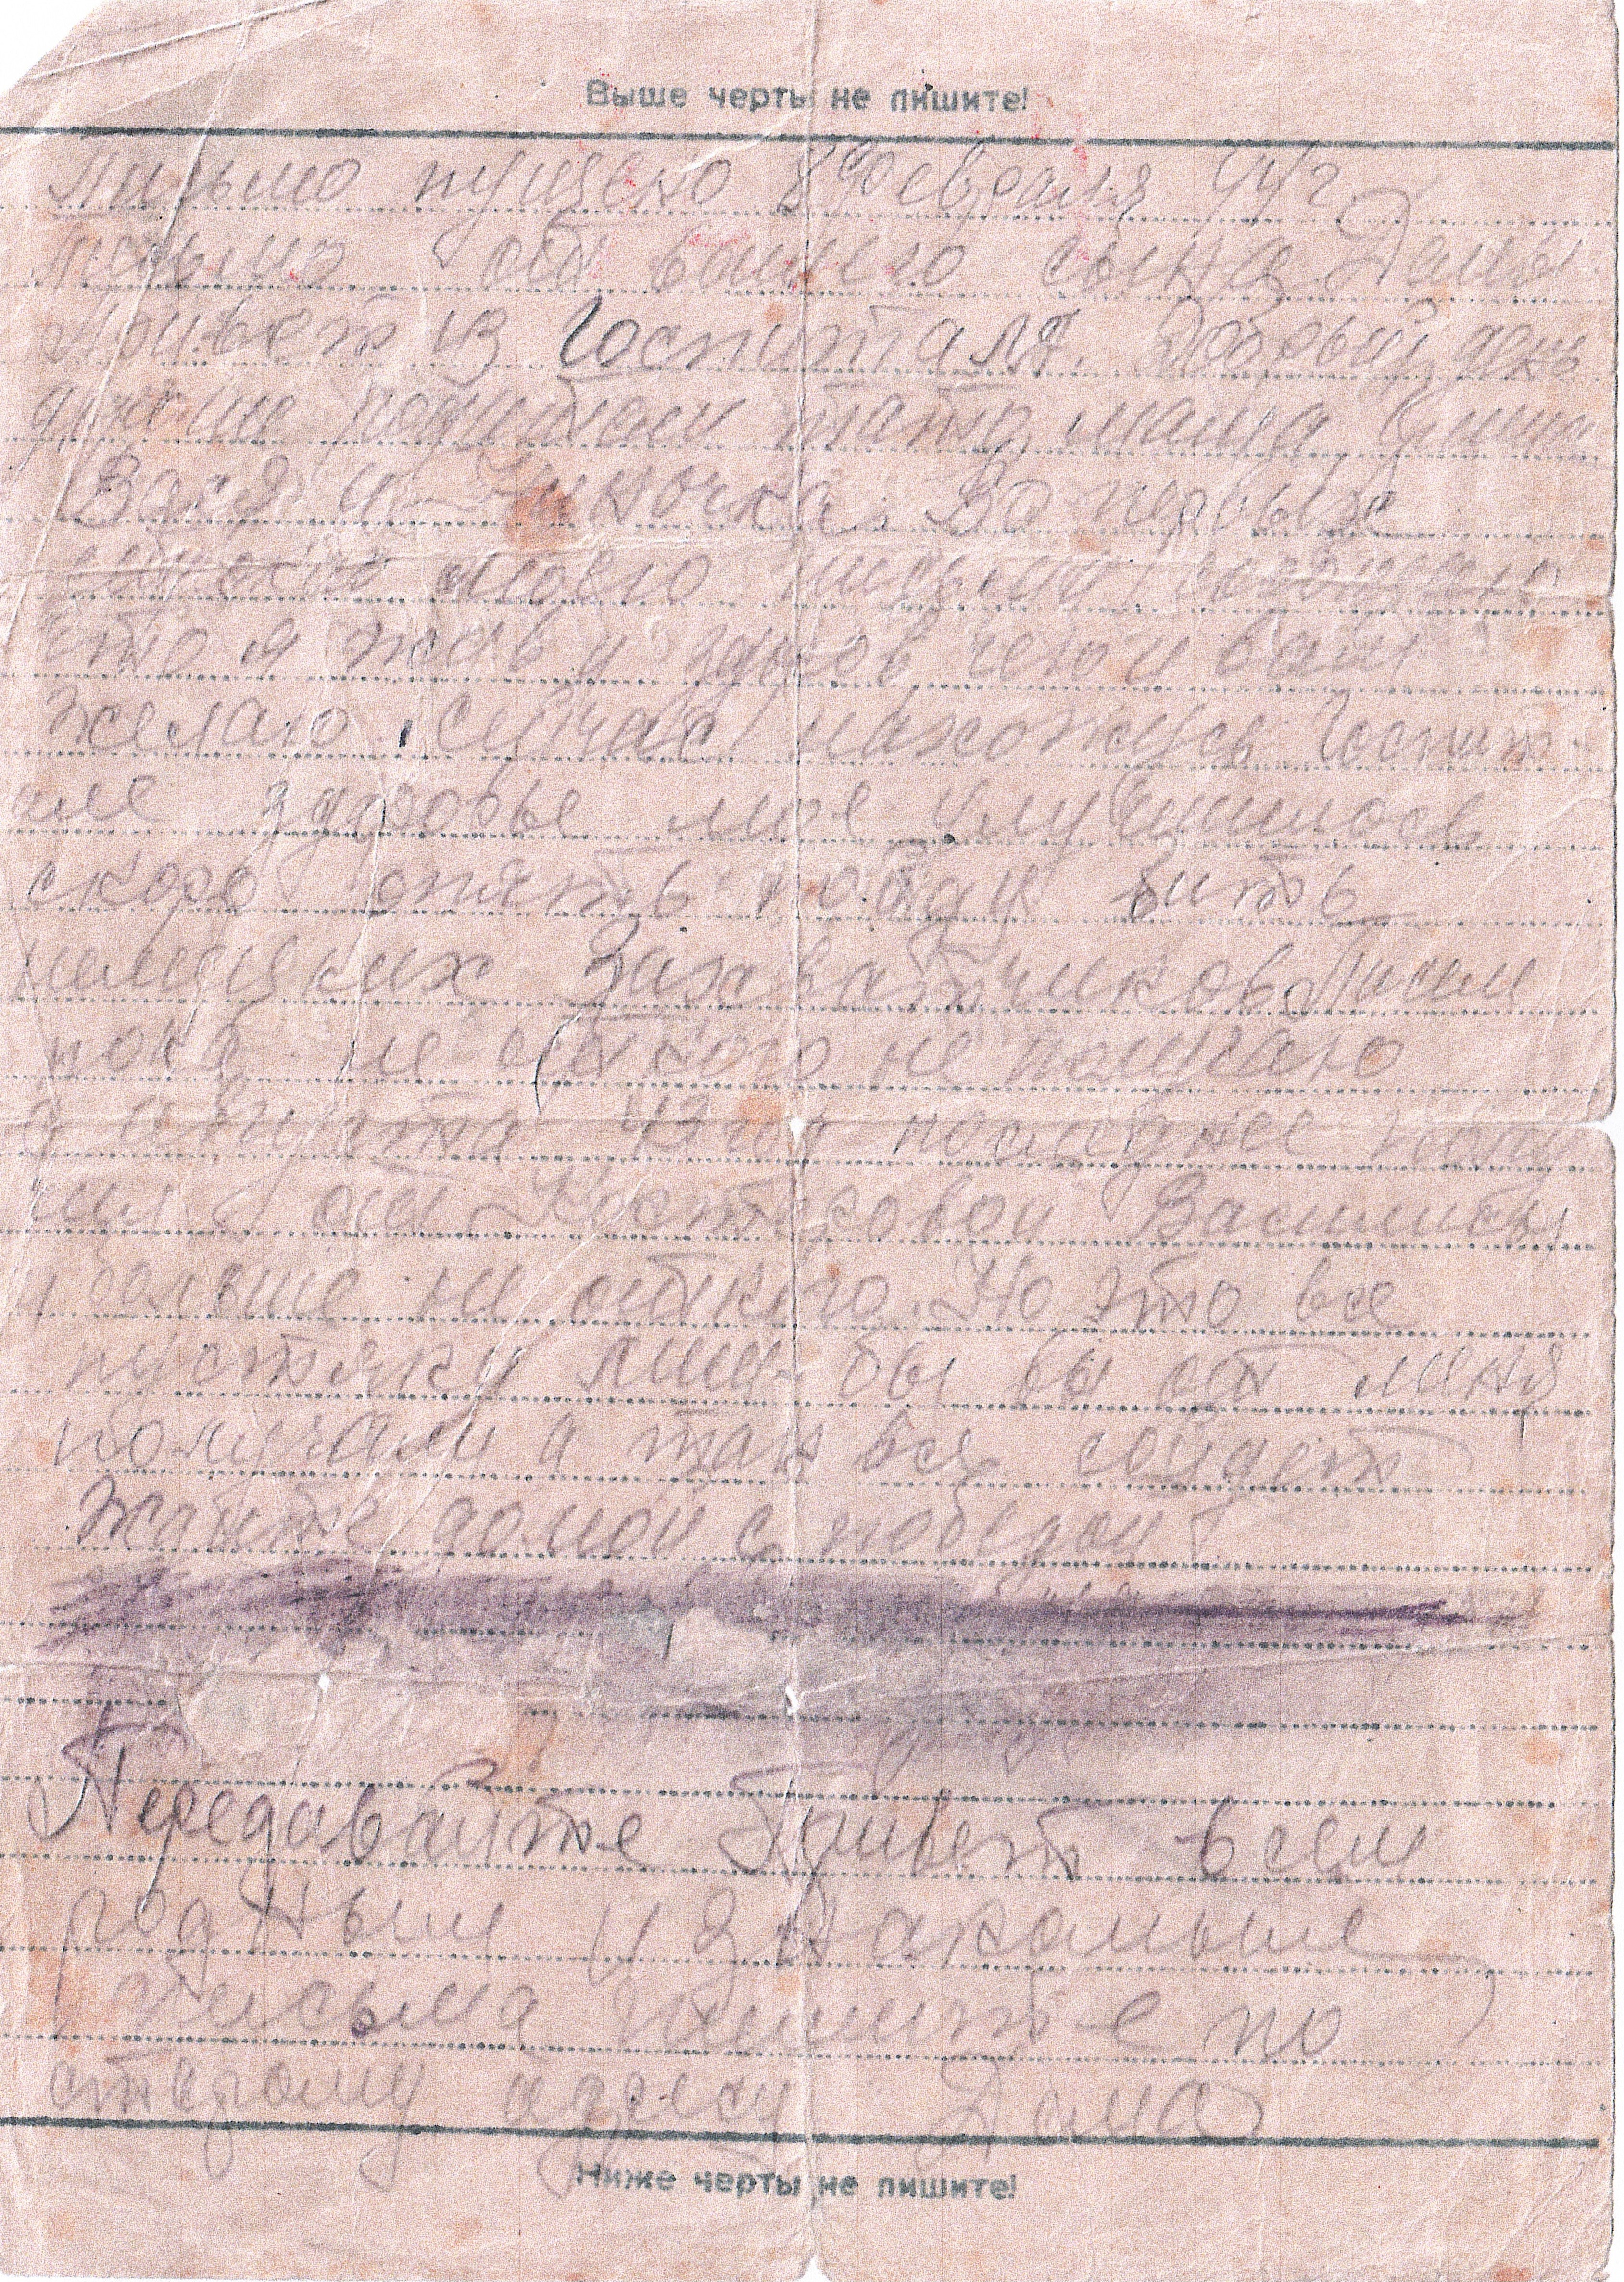 Выше черты не пишите!
Письмо пущено 8 февраля 44 г
письмо от вашего сына Дамы
Привет из Госпиталя. Добрый день
родители тятя, мама
Вася и Ниночка. Во первых
моего письма сообщаю
что я жив и здоров чего и вам
желаю. Сейчас нахожусь Госпит
але здоровье мое улучшилось
скоро опять пойду бить
немецких Захватчиков. Писем
пока не от кого не получаю
а августа 43 г последнее полу
чил от Костровой Валины
и больше ни от кого. Но это все
пустяки лишь бы вы от меня
получали а так все сойдет
Ждите домой с победой
Передавайте Привет всем
родным и знакомым
Письма пишите по
старому адресу Дама
Ниже черты не пишите!